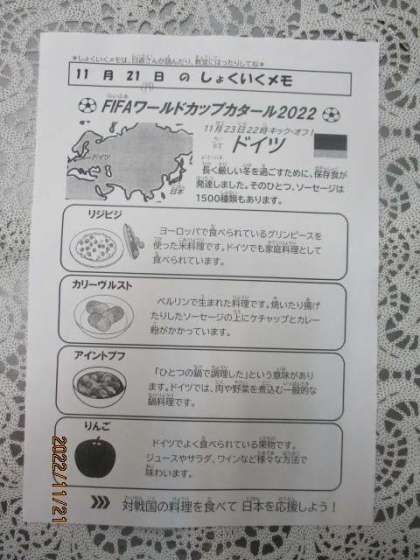 ＊しょくいくメモは、日直さんが読んだり、教室にはったりしてね＊
11 月 21 日 の しょくいくメモ
FIFAワールドカップカタール2022
11月23日22時キック・オフ！
ドイツ
ドイツ
日本
長く厳しい冬を過ごすために、保存食が
発達しました。そのひとつ、ソーセージは
1500種類もあります。
リジビジ
ヨーロッパで食べられているグリンピースを
使った米料理です。ドイツでも家庭料理として
食べられています。
カリーヴルスト
ベルリンで生まれた料理です。焼いたり揚げ
たりしたソーセージの上にケチャップとカレー
粉がかかっています。
アイントプフ
「ひとつの鍋で調理した」という意味があり
ます。ドイツでは、肉や野菜を煮込む一般的な
鍋料理です。
りんご
ドイツでよく食べられている果物です。
ジュースやサラダ、ワインなど様々な方法で
味わいます。
対戦国の料理を食べて 日本を応援しよう！
2022/11/21